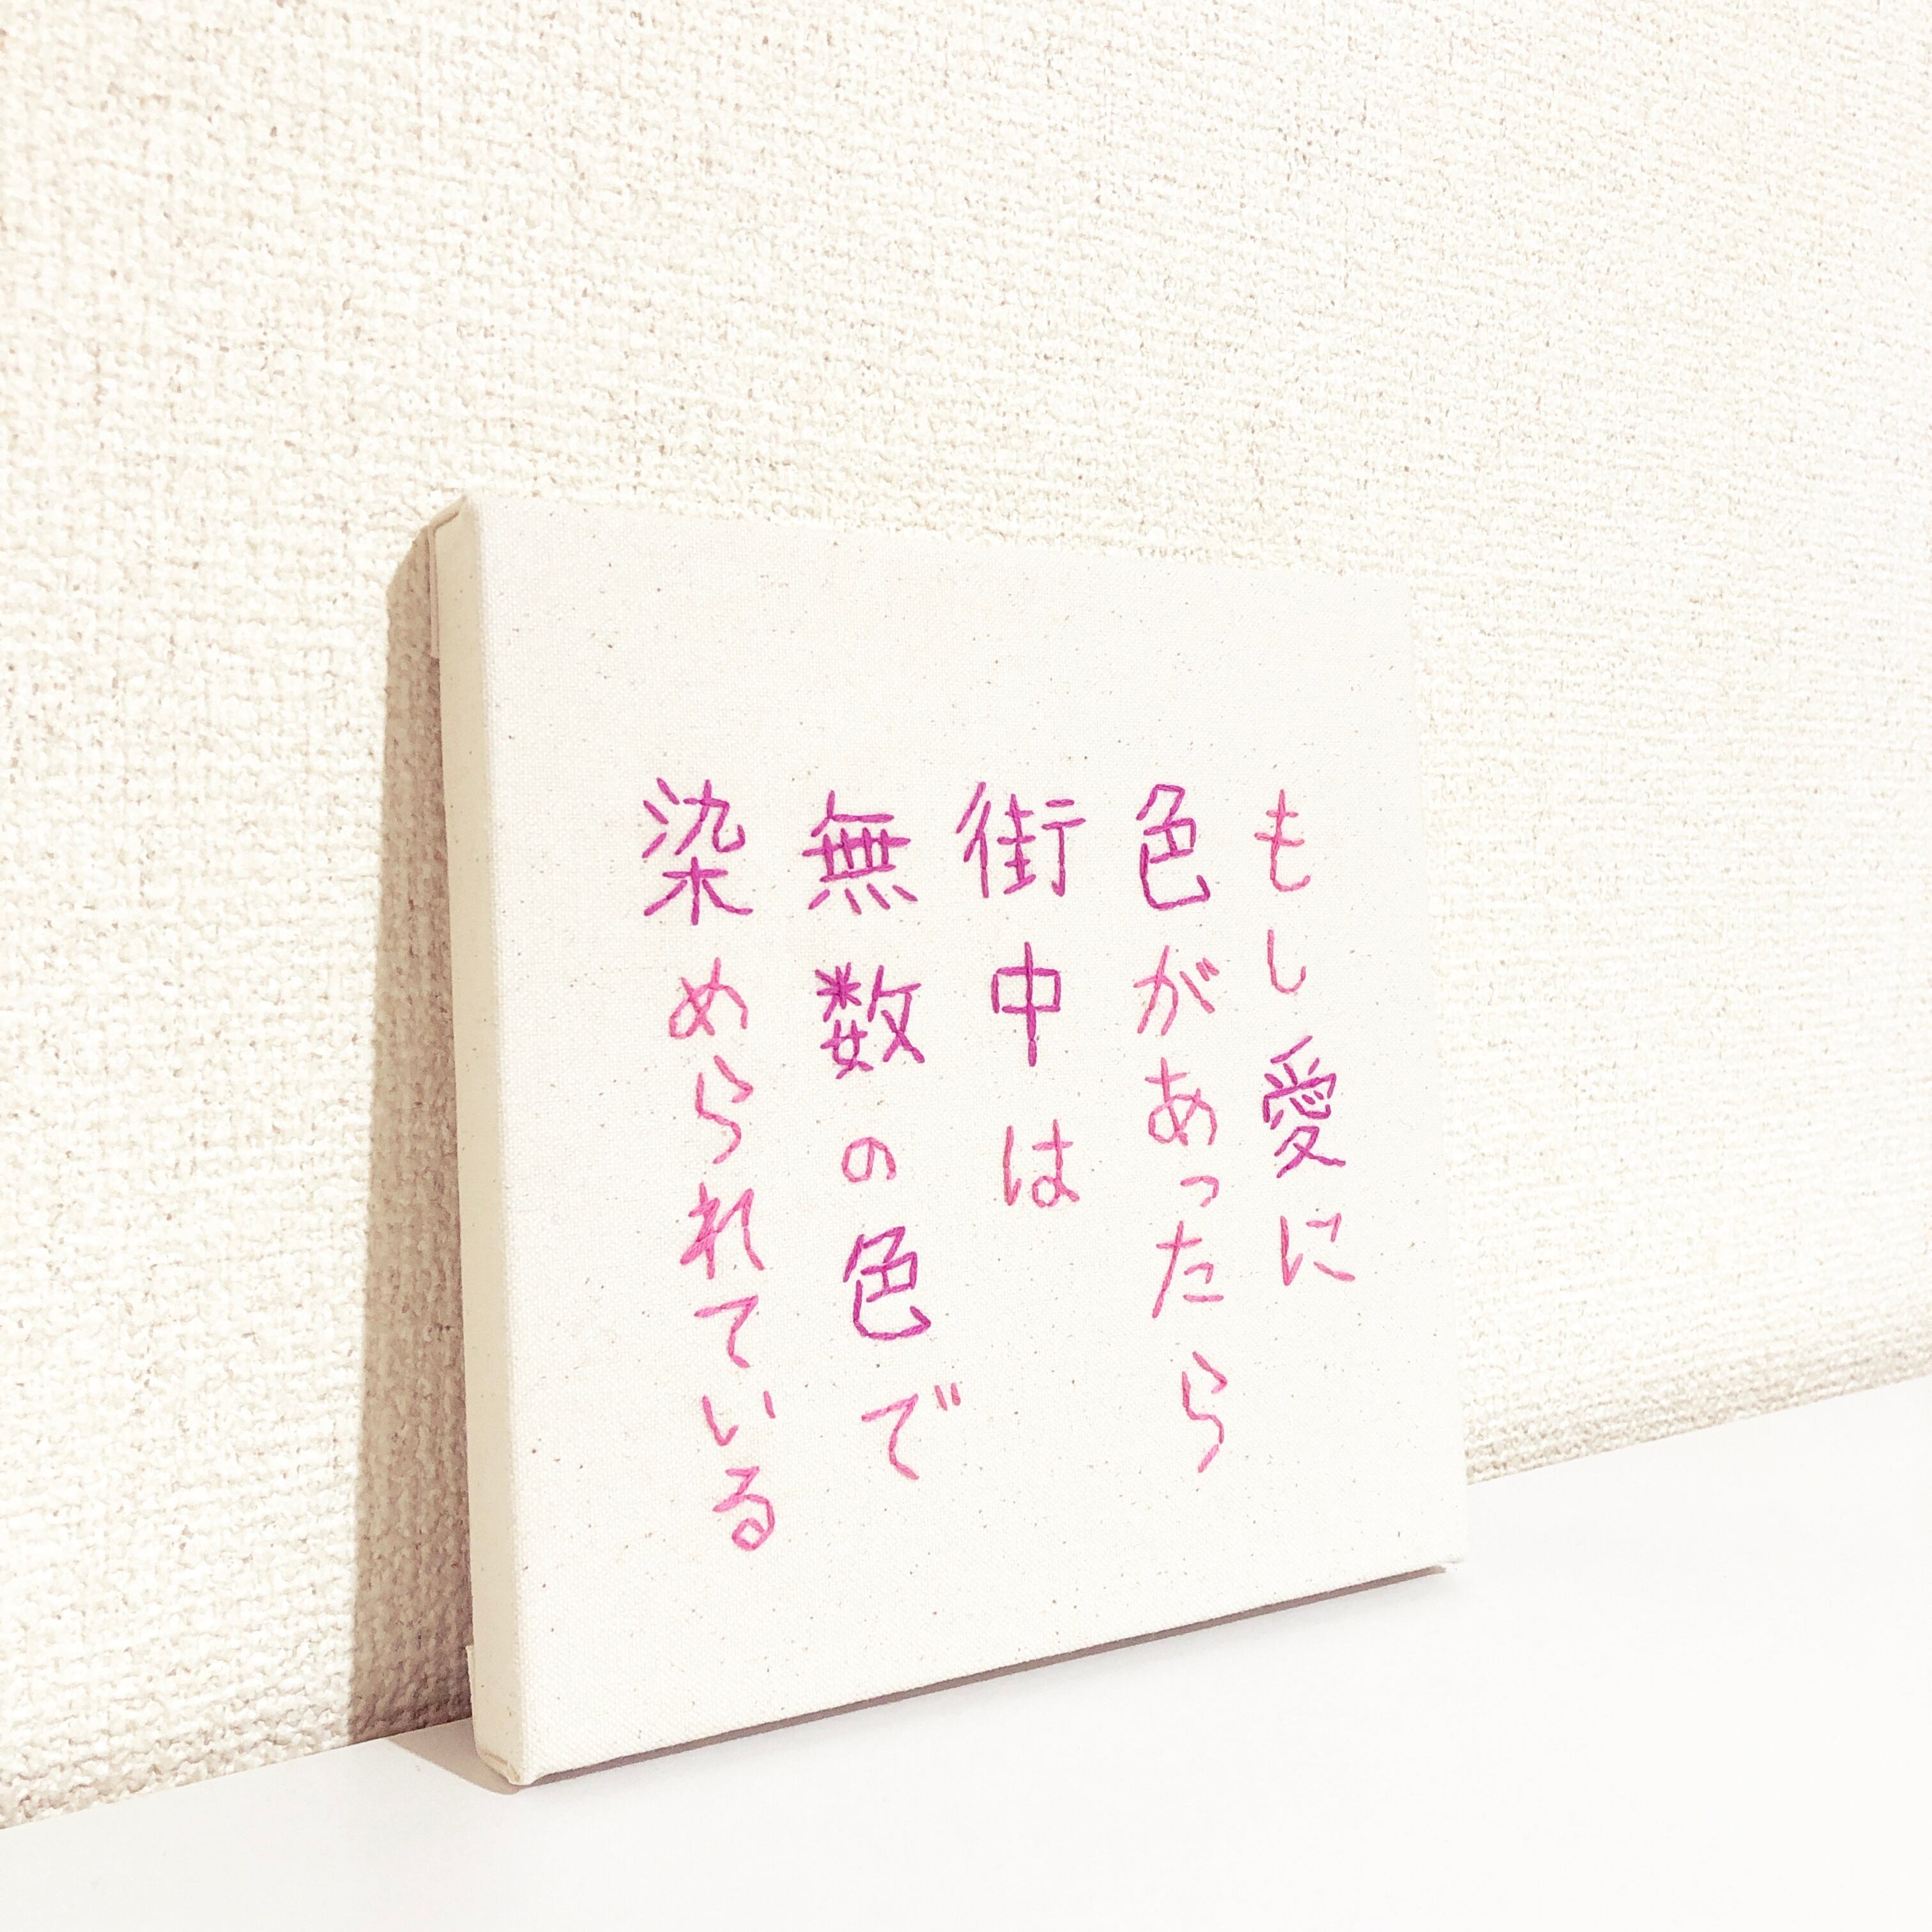 もし愛に
色があったら
街中は
無数の色で
染められている